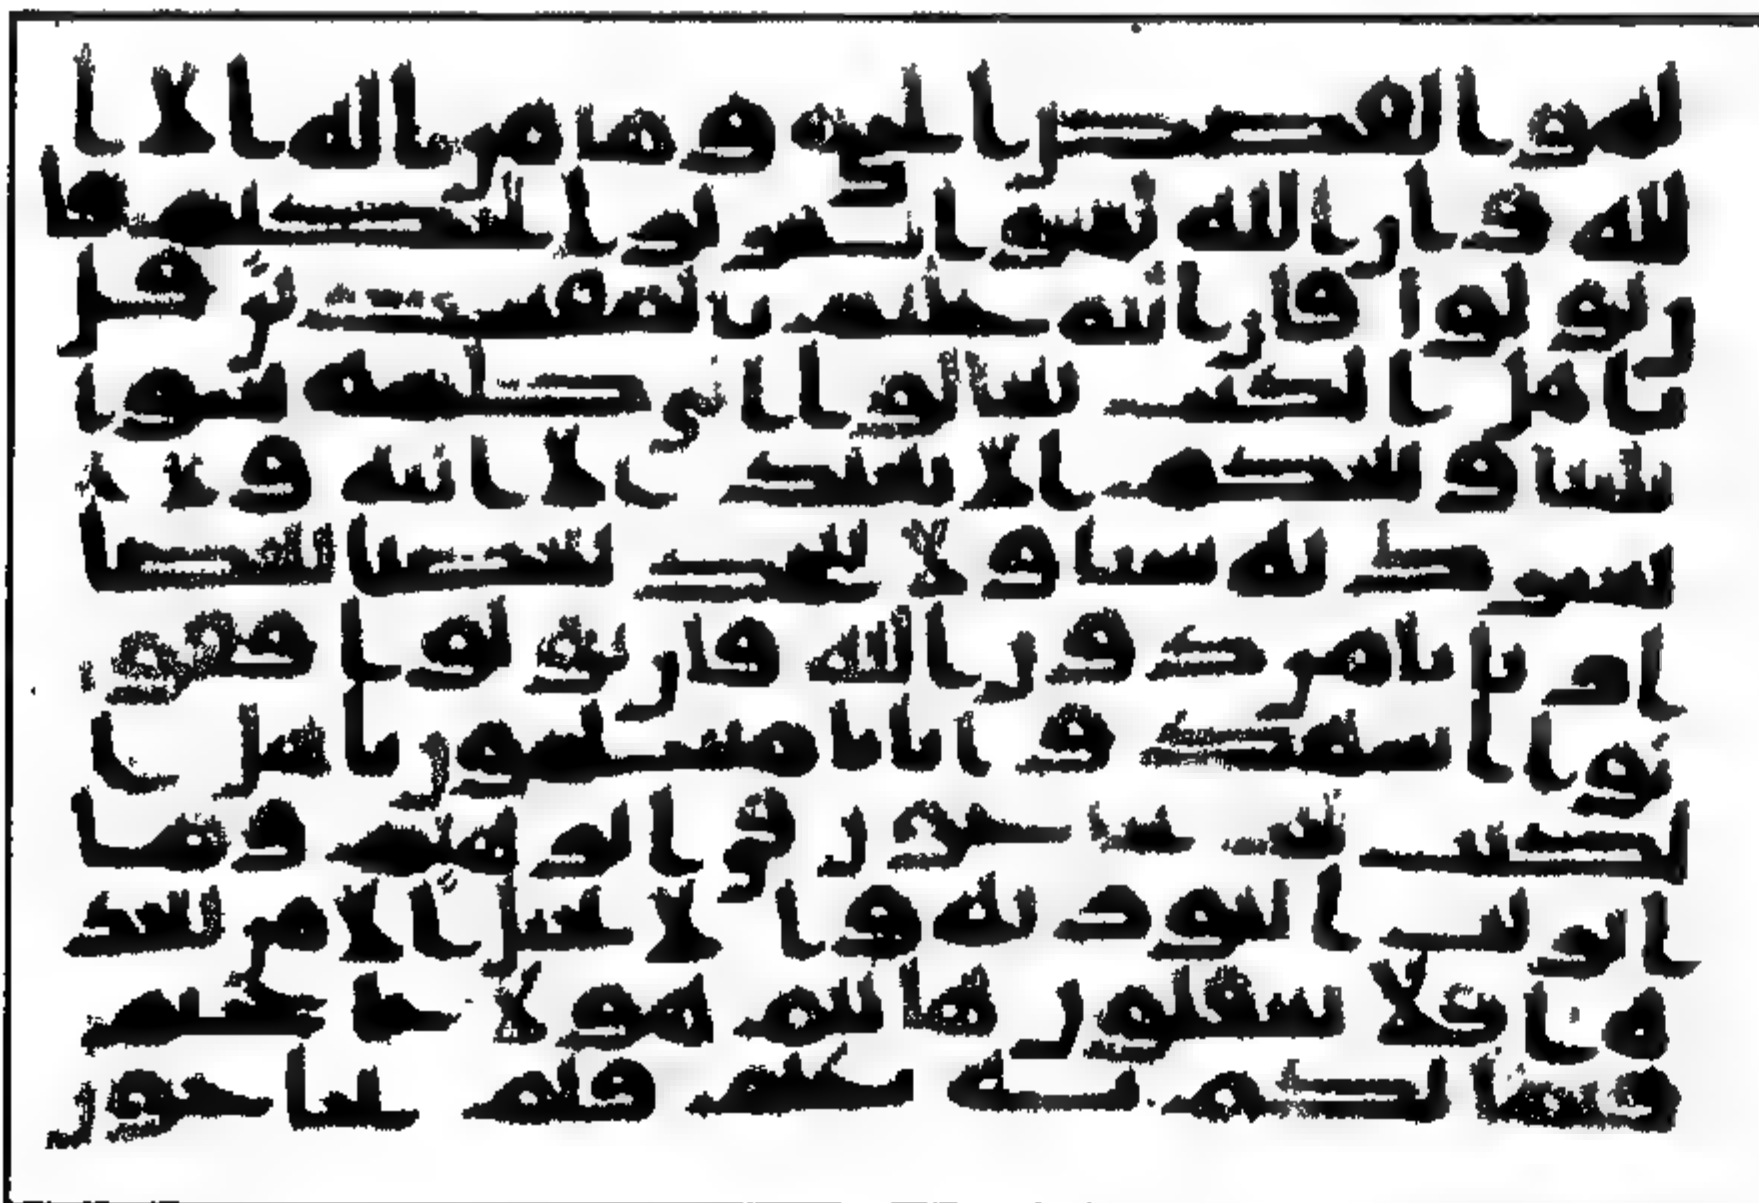 لهو القصص الحق وما من اله الا ا
لله وان الله لهو العزيز الحكيم فا
ن تولوا فان الله عليم بالمفسدين قل
ياهل الكتب تعالوا الى كلمه سوا
بيننا وبينكم الا نعبد الا الله ولا
نشرك به شيا ولا يتخذ بعضنا بعضا
اربابا من دون الله فان تولوا فقو
لوا اشهدوا بانا مسلمون ياهل ا
لكتب لم تحاجون في ابرهيم وما
انزلت التوريه والانجيل الا من بعد
ه افلا تعقلون هانتم هولا حاججتم
فيما لكم به علم فلم تحاجون